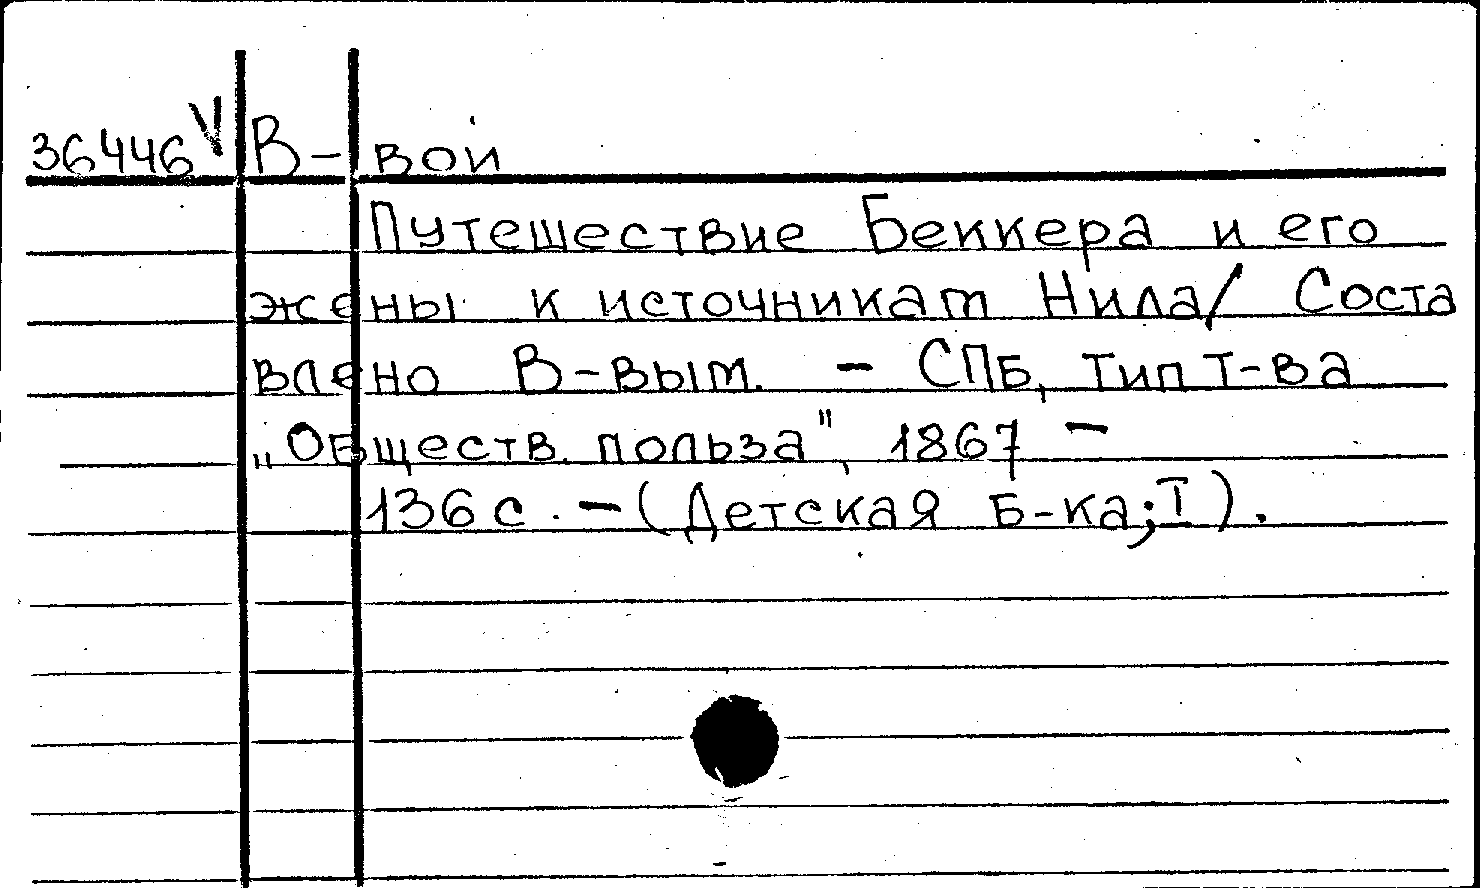 36446 V В-вой
Путешествие Беккера и его
жены к источникам Нила/ Соста
влено В-вым. - СПБ, Тип Т-ва
„Обществ. польза", 1867 -
136 с. - (Детская Б-ка; I).